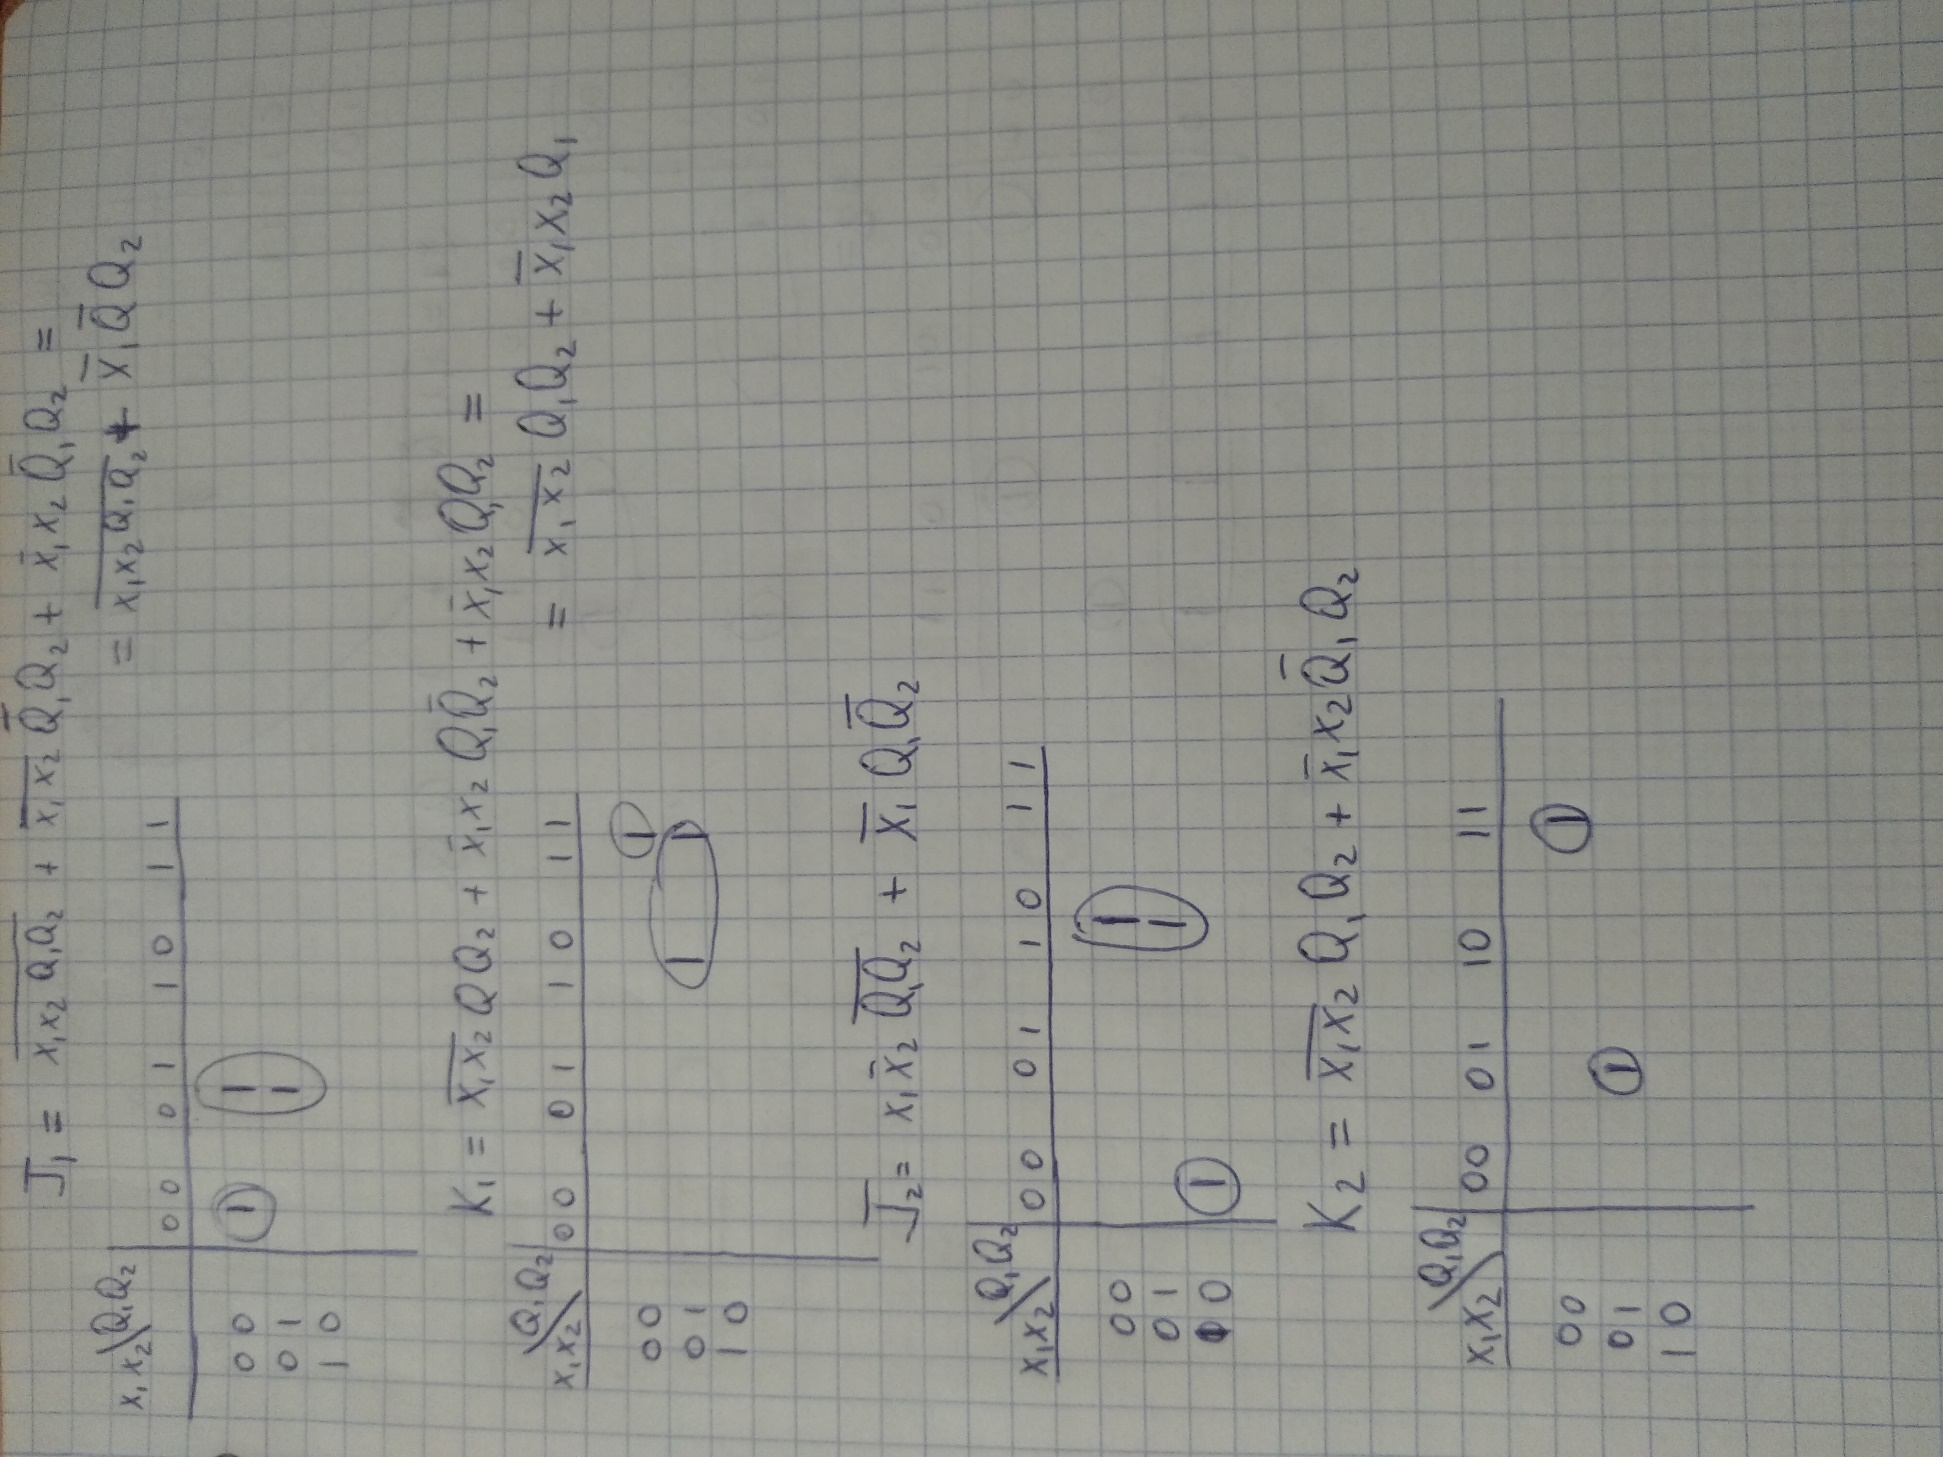 J₁ = x̅₁x̅₂Q̅₁Q̅₂ + x̅₁x̅₂Q̅₁Q₂ + x̅₁x₂Q̅₁Q₂ =
= x̅₁x̅₂Q̅₁Q̅₂ + x̅₁Q̅Q₂
x₁x₂\Q₁Q₂ 00 01 10 11
00 1 1
01 1
10
K₁ = x̅₁x̅₂QQ₂ + x̅₁x₂Q₁Q̅₂ + x̅₁x₂Q₁Q₂ =
= x̅₁x̅₂Q₁Q₂ + x̅₁x₂Q₁
x₁x₂\Q₁Q₂ 00 01 10 11
00 1
01 1 1
10
J₂ = x₁x̅₂Q̅₁Q̅₂ + x̅₁Q₁Q̅₂
x₁x₂\Q₁Q₂ 00 01 10 11
00 1
01 1
10 1
K₂ = x̅₁x̅₂Q₁Q₂ + x̅₁x₂Q̅₁Q₂
x₁x₂\Q₁Q₂ 00 01 10 11
00 1
01 1
10